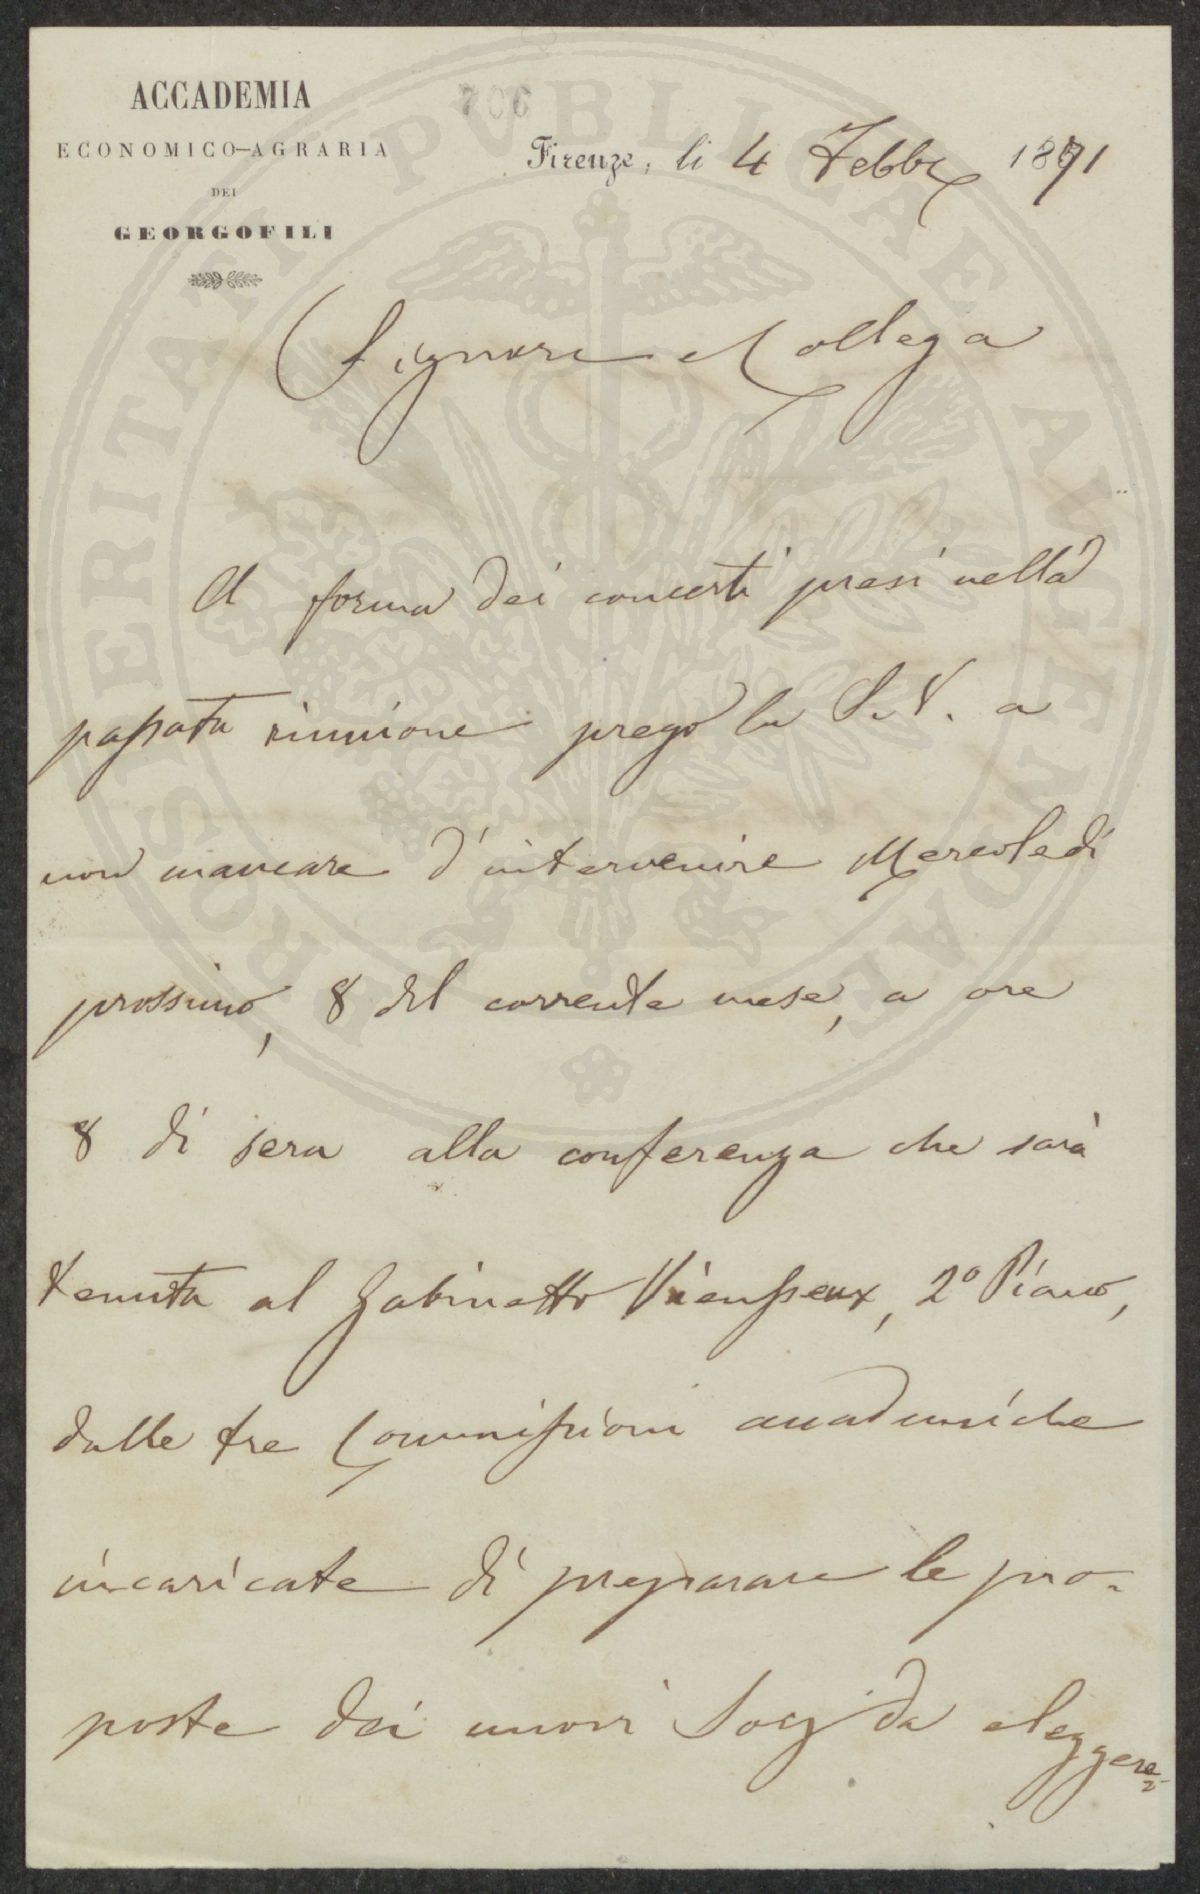 706
ACCADEMIA
ECONOMICO-AGRARIA
DEI
GEORGOFILI
Firenze, li 4 Febbr 1871
Signore Collega
A forma dei concerti presi nella
passata riunione prego la S. V. a
non mancare d'intervenire Mercoledì
prossimo, 8 del corrente mese, a ore
8 di sera alla conferenza che sarà
tenuta al Gabinetto Vieusseux, 2º Piano,
dalle tre Commissioni accademiche
incaricate di preparare le pro-
poste dei nuovi Socj da eleggere
PROSPERITATI PUBLICAE AUGENDAE